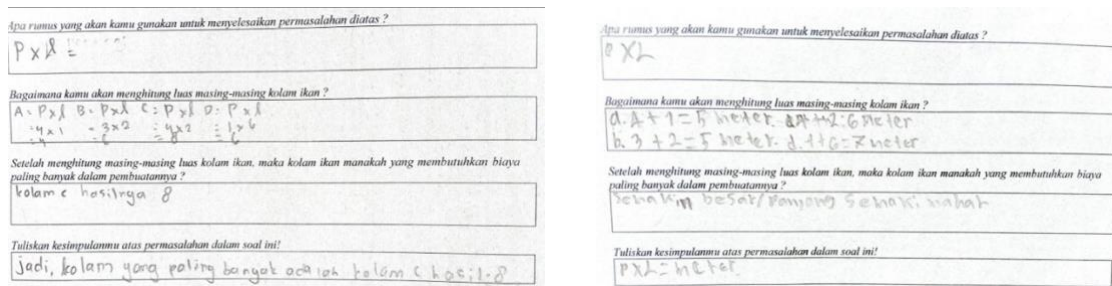 Apa rumus yang akan kamu gunakan untuk menyelesaikan permasalahan diatas ?
P x l =
Bagaimana kamu akan menghitung luas masing-masing kolam ikan ?
A = P x l B = P x l C = P x l D = P x l
= 4 x 1 = 3 x 2 = 4 x 2 = 1 x 6
= 4 = 6 = 8 = 6
Setelah menghitung masing-masing luas kolam ikan, maka kolam ikan manakah yang membutuhkan biaya
paling banyak dalam pembuatannya ?
kolam c hasilnya 8
Tuliskan kesimpulanmu atas permasalahan dalam soal ini!
jadi, kolam yang paling banyak adalah kolam c hasil = 8
Apa rumus yang akan kamu gunakan untuk menyelesaikan permasalahan diatas ?
P X L
Bagaimana kamu akan menghitung luas masing-masing kolam ikan ?
a. 4 + 1 = 5 meter. 4 + 2 = 6 meter
b. 3 + 2 = 5 meter. d. 1 + 6 = 7 meter
Setelah menghitung masing-masing luas kolam ikan, maka kolam ikan manakah yang membutuhkan biaya
paling banyak dalam pembuatannya ?
semakin besar/panjang semaki mahal
Tuliskan kesimpulanmu atas permasalahan dalam soal ini!
P X L = meter